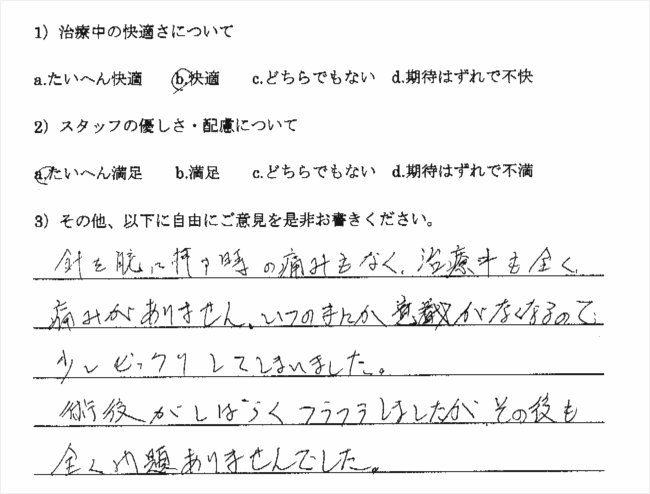 1）治療中の快適さについて
a.たいへん快適　b.快適　c.どちらでもない　d.期待はずれで不快
2）スタッフの優しさ・配慮について
a.たいへん満足　b.満足　c.どちらでもない　d.期待はずれで不満
3）その他、以下に自由にご意見を是非お書きください。
針を腕に挿す時の痛みもなく、治療中も全く
痛みがありません。いつのまにか意識がなくなるので
少しビックリしてしまいました。
術後がしばらくフラフラしましたが その後も
全く問題ありませんでした。